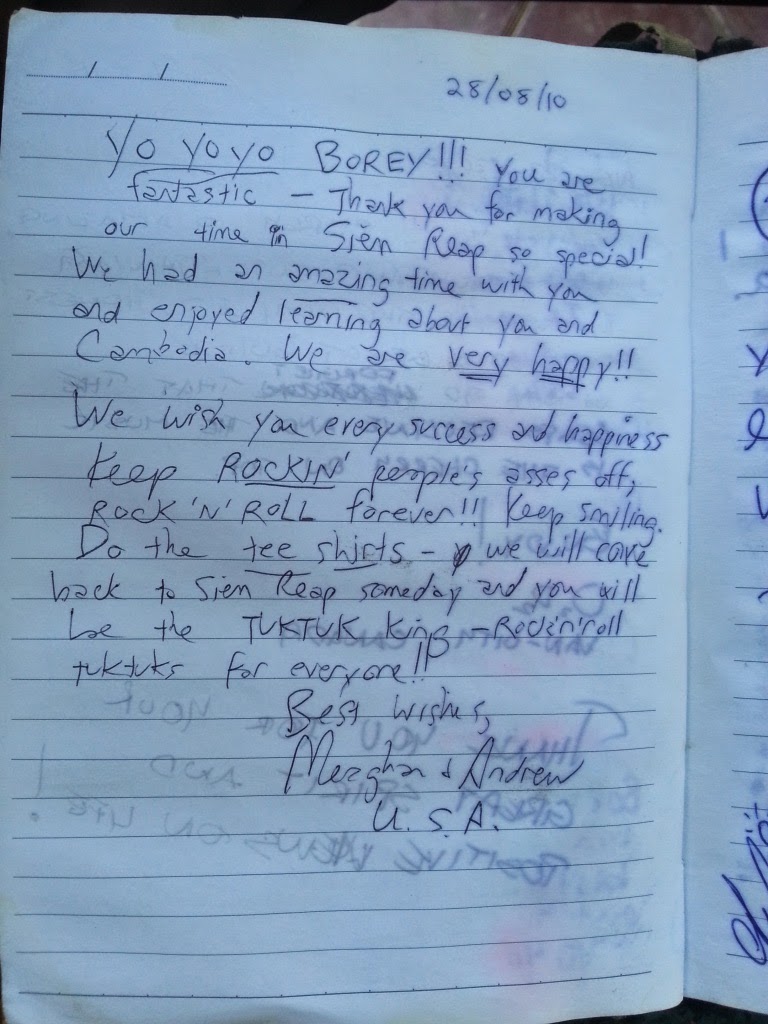 28/08/10
YO YOYO BOREY!!! You are
fantastic – Thank you for making
our time in Siem Reap so special!
We had an amazing time with you
and enjoyed learning about you and
Cambodia. We are very happy!!
We wish you every success and happiness
Keep ROCKIN' people's asses off,
ROCK 'N' ROLL forever!! Keep smiling.
Do the tee shirts – we will come
back to Siem Reap someday and you will
be the TUKTUK King – Rock'n'roll
tuktuks for everyone!!
Best wishes,
Meaghan & Andrew
U.S.A.